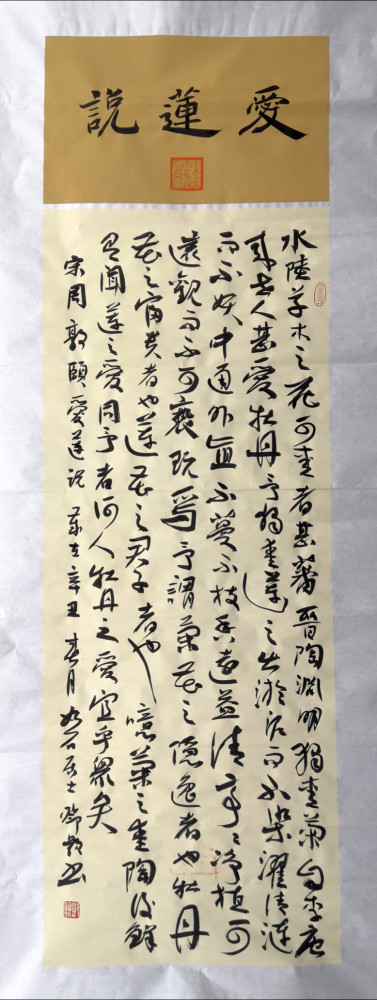 愛蓮說
水陸草木之花可愛者甚蕃晉陶淵明獨愛菊自李唐
來世人甚愛牡丹予獨愛蓮之出淤泥而不染濯清漣
而不妖中通外直不蔓不枝香遠益清亭〻淨植可
遠觀而不可褻玩焉予謂菊花之隱逸者也牡丹
花之富貴者也蓮花之君子者也噫菊之愛陶後鮮
有聞蓮之愛同予者何人牡丹之愛宜乎眾矣
宋周敦頤愛蓮說歲在辛丑春月居士書